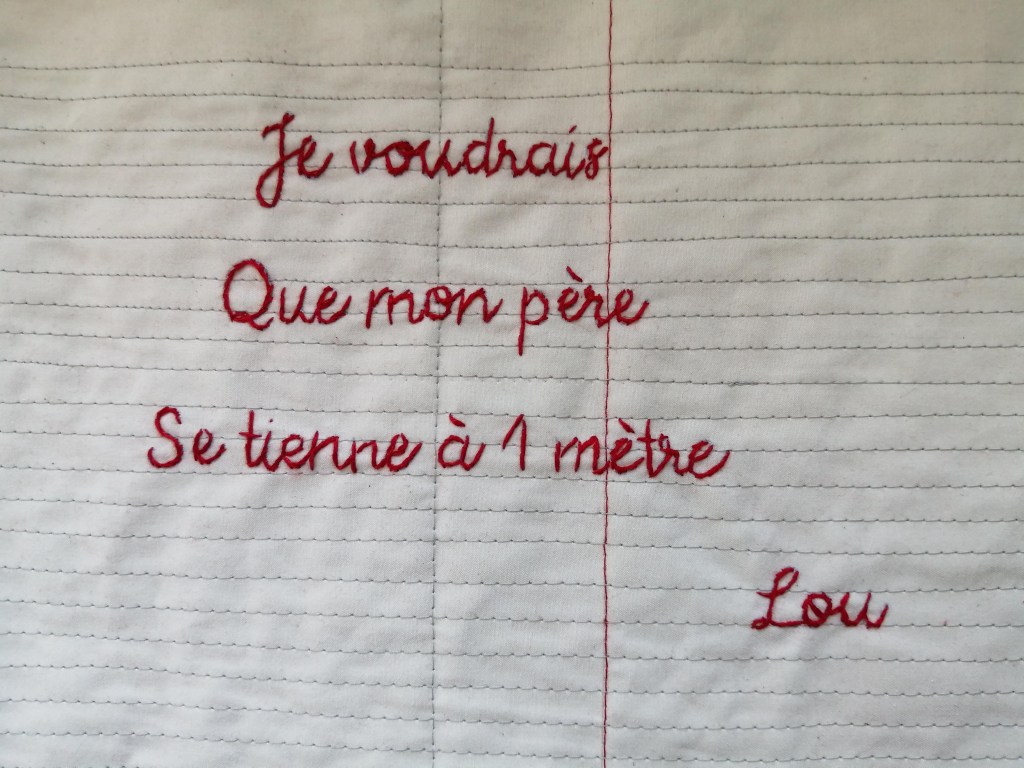 Je voudrais
Que mon père
Se tienne à 1 mètre
Lou